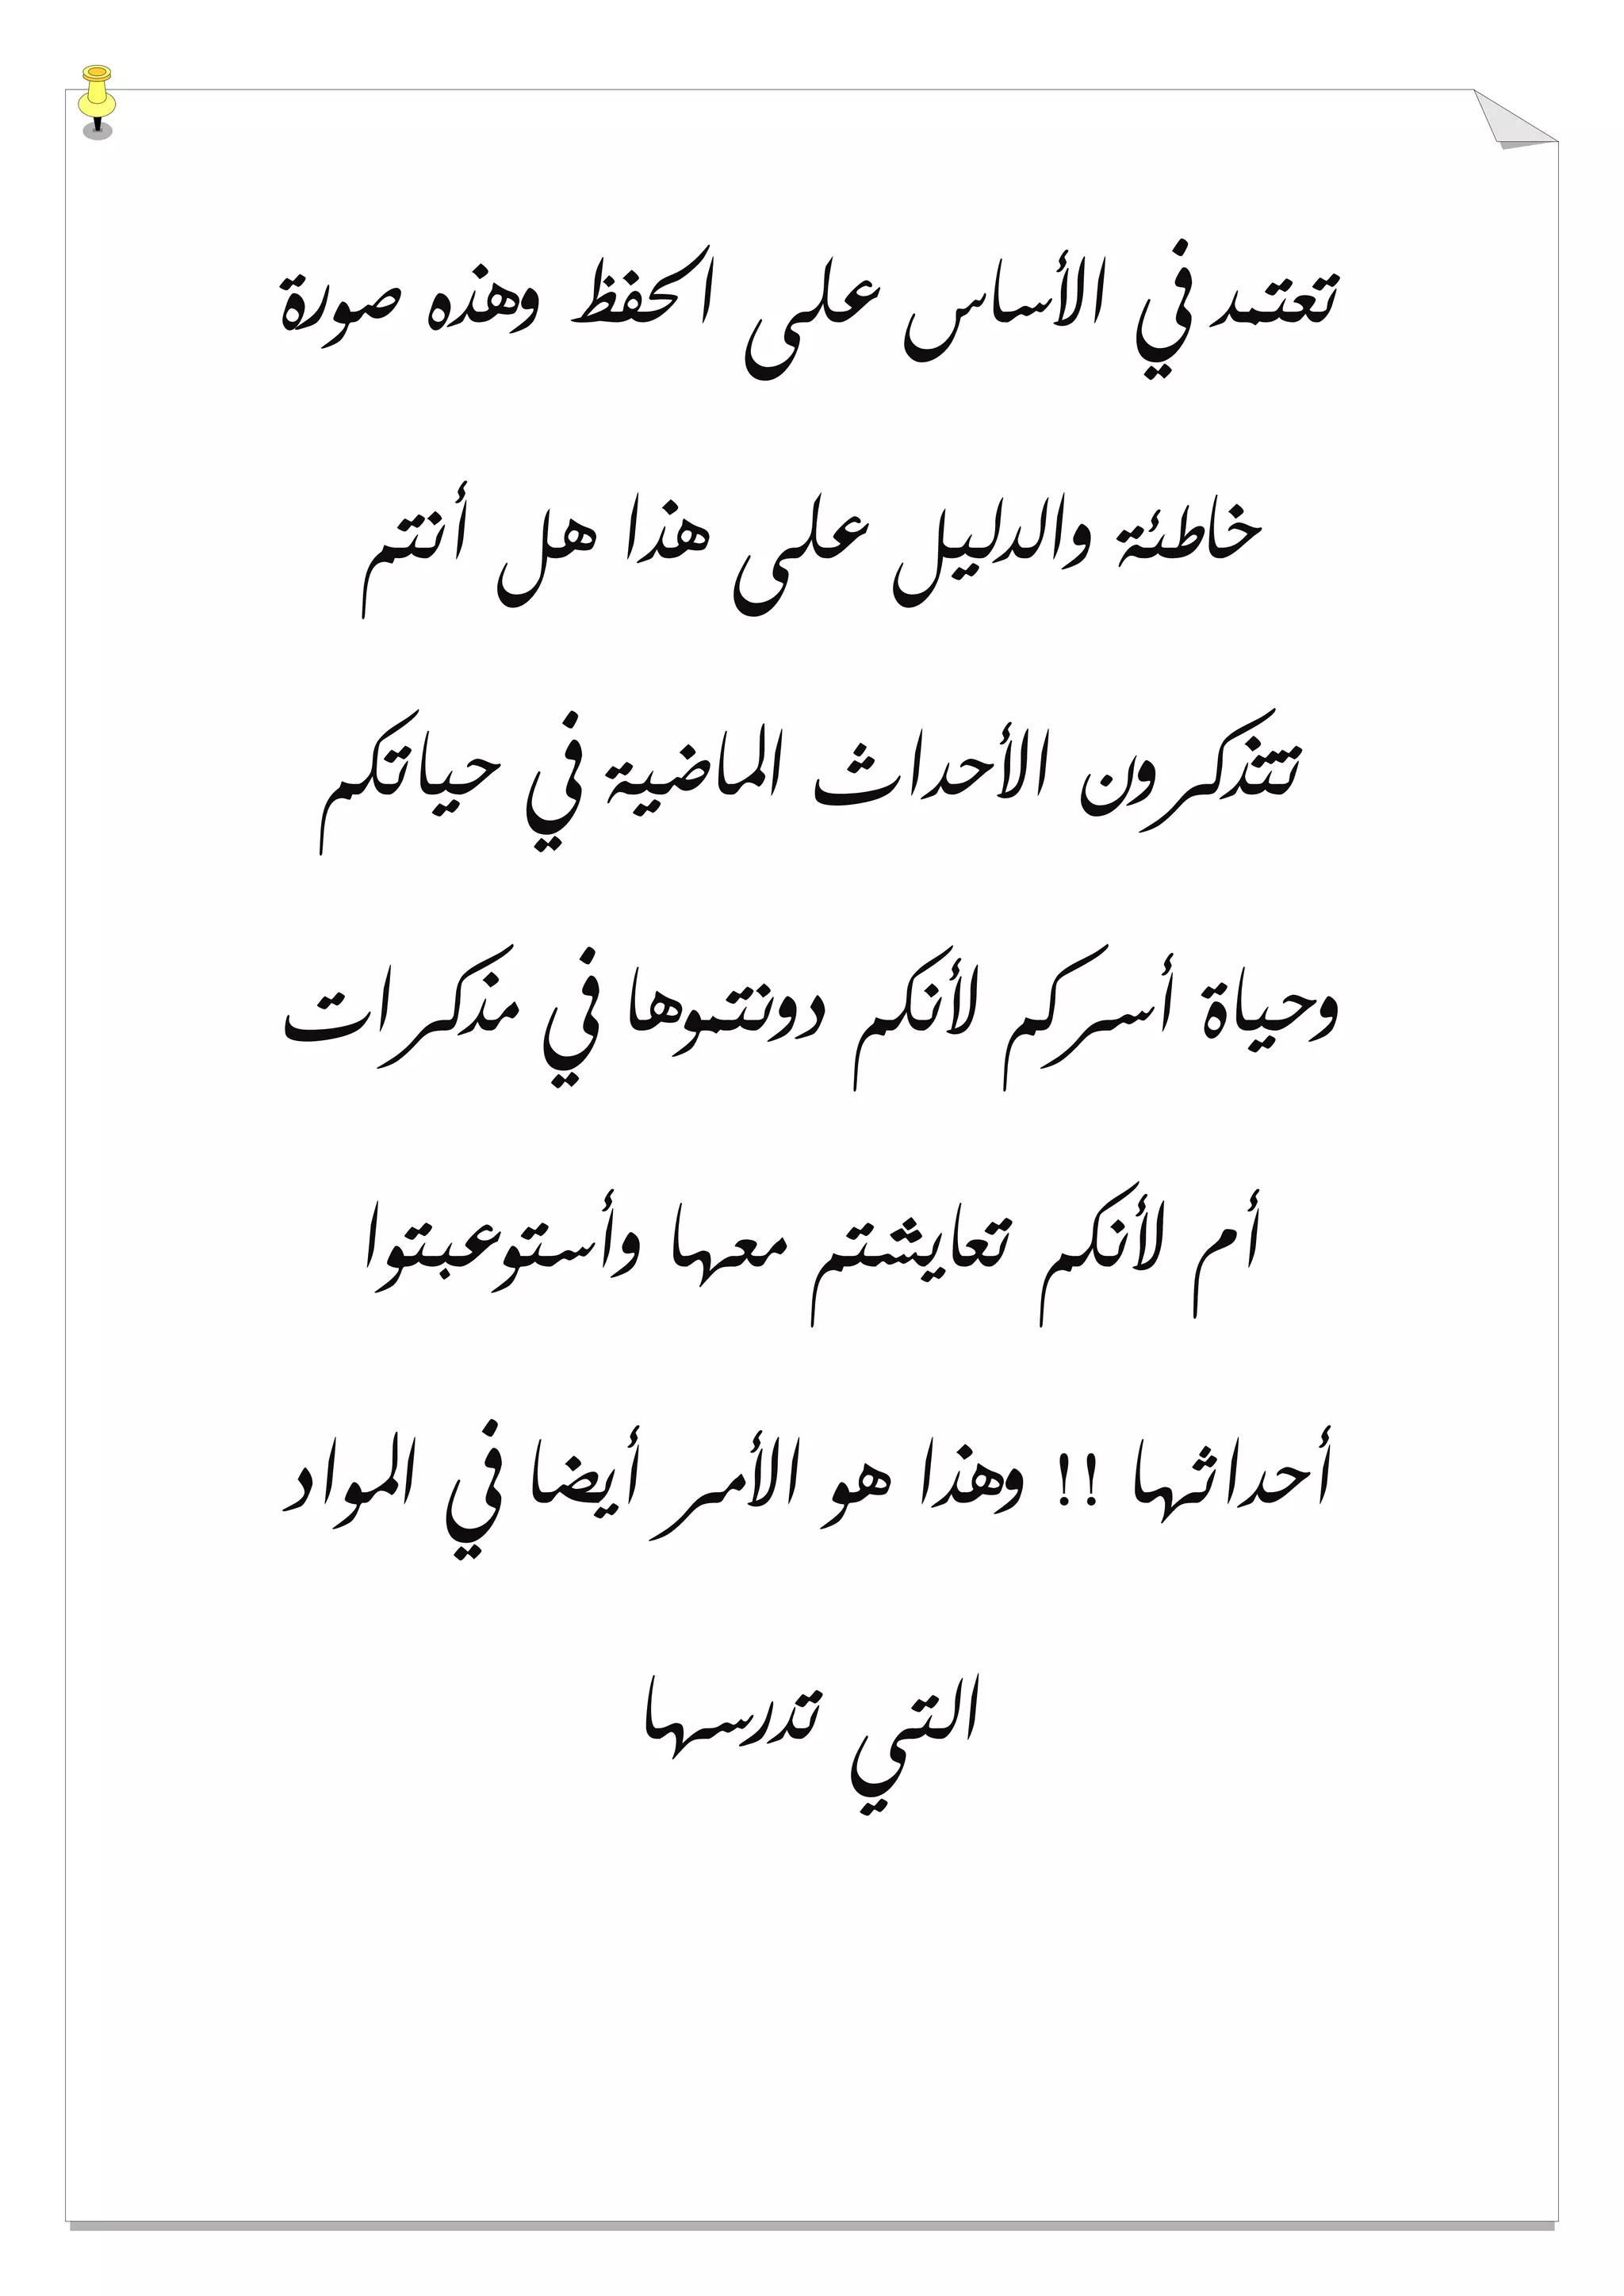 تعتمد في الأساس على الحفظ وهذه صورة
خاطئة والدليل على هذا هل أنتم
تتذكرون الأحداث الماضية في حياتكم
وحياة أسركم لأنكم دونتموها في مذكرات
أم لأنكم تعايشتم معها وأستوعبتوا
أحداثها !! وهذا هو الأمر أيضا في المواد
التي تدرسها